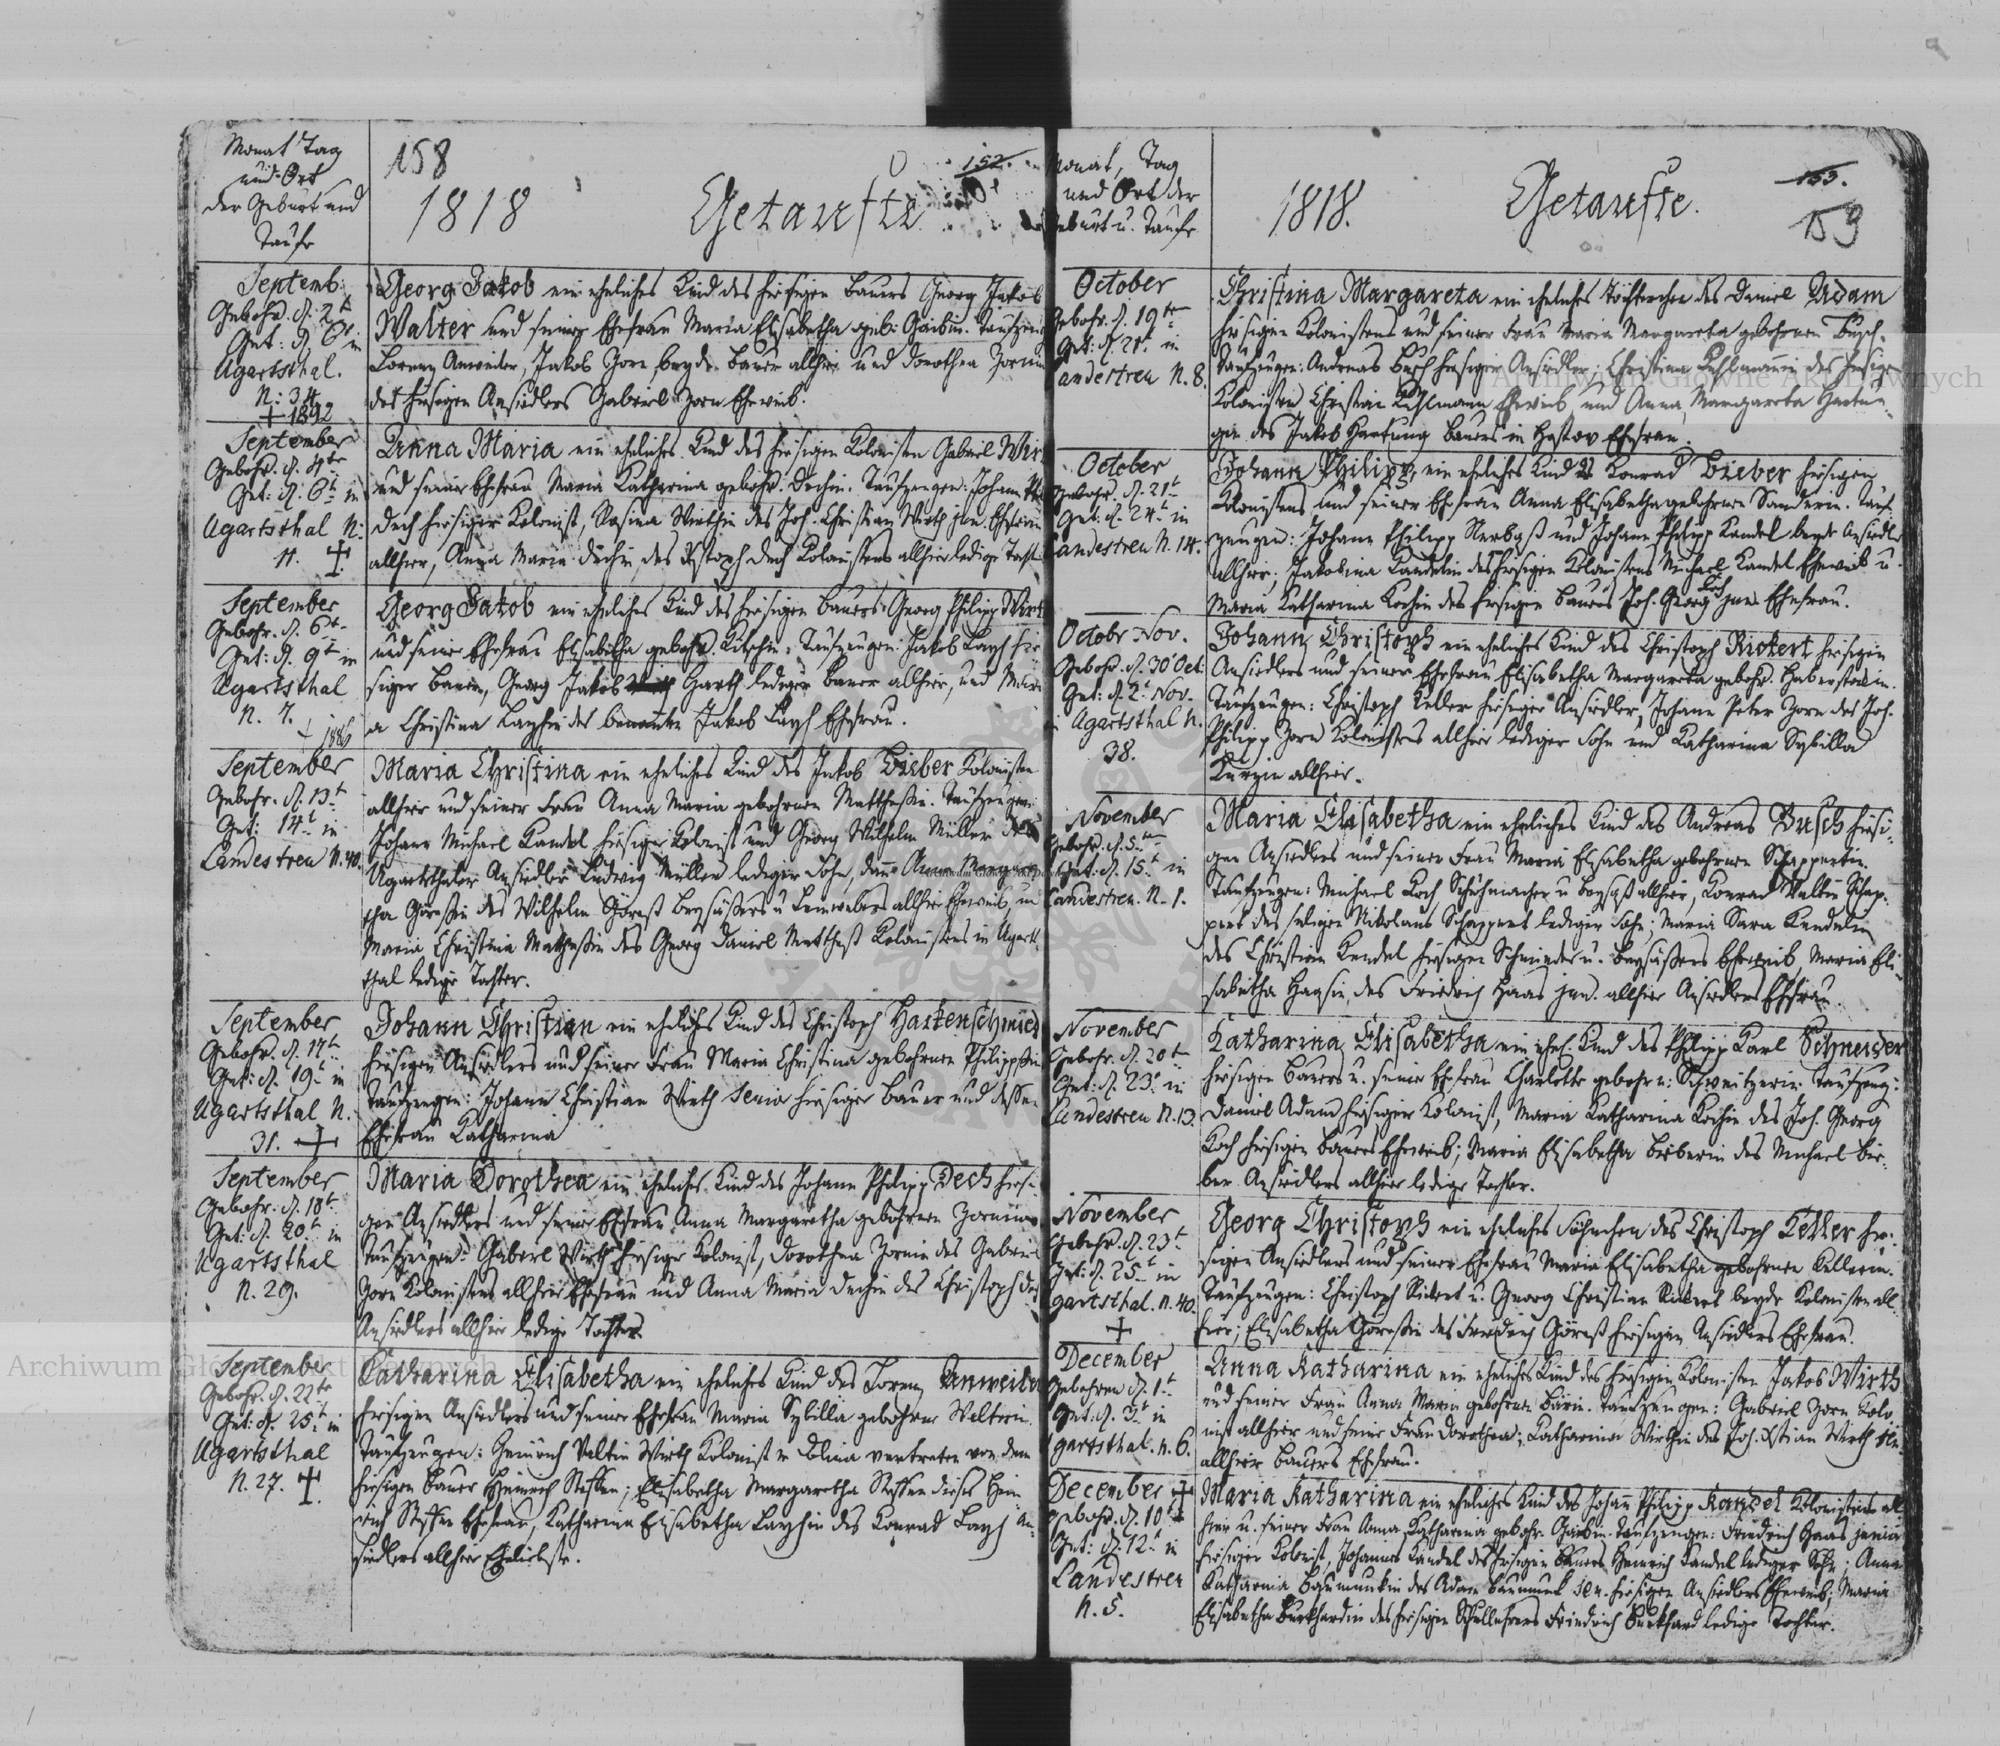 Monat Tag
und Ort
der Geburt und
Taufe
158
1818 Getaufte
152.
Septemb.
Gebohr. d. 2t
Get: d. 6t in
Ugartsthal.
N: 34
+ 1892
Georg Jakob ein eheliches Kind des hiesigen Bauers Georg Jakob
Walter und seiner Ehefrau Maria Elisabetha geb: Taufzeug
Lorenz Anweiler, Jakob Zorn beyde Bauer allhier und Dorothea Zornin
des hiesigen Ansiedlers Gabriel Zorn Eheweib.
September
Gebohr. d. 4te
Get: d. 6t in
Ugartsthal N:
11. +
Anna Maria ein eheliches Kind des hiesigen Kolonisten Gabriel Wir
und seiner Ehefrau Maria Katharina gebohr. Dechin. Taufzeugen: Johann Ph
Dech hiesiger Kolonist, Rosina Wirthin des Joh. Christian Wirth jun. Ehefrau
allhier, Anna Maria Dechin des Xstoph Dech Kolonistens allhier ledige Tocht
September
Gebohr. d. 6t
Get: d. 9t in
Ugartsthal
N. 7.
Georg Jakob ein eheliches Kind des hiesigen Bauers Georg Philipp Wirt
und seiner Ehefrau Elisabetha gebohr. Taufzeugen: Jakob Layh hie
siger Bauer, Georg Jakob Harth lediger Bauer allhier, und Mari
a Christina Layhin des benannten Jakob Layh Ehefrau.
September
Gebohr. d. 13t
Get: 14t in
Landestreu N. 40.
Maria Christina ein eheliches Kind des Jakob Bieber Kolonisten
allhier und seiner Frau Anna Maria gebohrnen Matthesin. Taufzeugen
Johann Michael Kandel hiesiger Kolonist und Georg Wilhelm Müller des
Ugartsthaler Ansiedler Ludwig Müller lediger Sohn, dann Anna Margare
tha Göresin des Wilhelm Göreß Beysässers u Leinwebers allhier Eheweib, und
Maria Christina Mathesin des Georg Daniel Mattheß Kolonistens in Ugarts
thal ledige Tochter.
September
Gebohr. d. 17t
Get: d. 19t in
Ugartsthal N.
31. +
Johann Christian ein eheliches Kind des Christoph Hartenschmied
hiesigen Ansiedlers und seiner Frau Maria Christina gebohrnen Philippsin
Taufzeugen: Johann Christian Wirth Senior hiesiger Bauer und dessen
Ehefrau Katharina
September
Gebohr. d. 18t
Get: d. 20t in
Ugartsthal
N. 29.
Maria Dorothea ein eheliches Kind des Johann Philipp Dech hiesi-
gen Ansiedlers und seiner Ehefrau Anna Margaretha gebohrnen Zornin
Taufzeugen: Gabriel Wirth hiesiger Kolonist, Dorothea Zornin des Gabriel
Zorn Kolonistens allhier Ehefrau und Anna Maria Dechin des Christoph Dech
Ansiedlers allhier ledige Tochter.
September
Gebohr. d. 22te
Get: d. 25t in
Ugartsthal
N. 27. +.
Catharina Elisabetha ein eheliches Kind des Lorenz Anweiler
hiesigen Ansiedlers und seiner Ehefrau Maria Sybilla gebohrne
Taufzeugen: Heinrich Valtin Wirth Kolonist in Dolina vertreten von dem
hiesigen Bauer Heinrich Steffen; Elisabetha Margaretha Steffen dieses Hein
rich Steffen Ehefrau, Katharina Elisabetha Layhin des Konrad Layh An-
siedlers allhier Eheliebste.
Monat, Tag
und Ort der
Geburt u. Taufe
1818. Getaufte.
153.
159
October
Gebohr. d. 19ten
Get: d. 21t in
Landestreu N. 8.
Christina Margareta ein eheliches Töchterchen des Daniel Adam
hiesigen Kolonistens und seiner Frau Maria Margareta gebohrnen Busch.
Taufzeugen: Andreas Busch hiesiger Ansiedler; Christina Kuhlmannin des hiesigen
Kolonisten Christian Kuhlmann Eheweib und Anna Margareta Hartun-
gin des Jakob Hartung Bauers in Ehefrau.
October
Gebohr. d. 21t
Get: d. 24t in
Landestreu N. 14.
Johann Philipp, ein eheliches Kind des Konrad Bieber hiesigen
Kolonistens und seiner Ehefrau Anna Elisabetha gebohrnen Sanderin. Tauf-
zeugen: Johann Philipp und Johann Philipp Kandel beyde Ansiedler
allhier; Jakobina Kandelin des hiesigen Kolonistens Michael Kandel Eheweib u.
Maria Katharina Kochin des hiesigen Bauers Joh. Georg Koch jun. Ehefrau.
Octobr Nov.
Gebohr. d. 30t Oct.
Get: d. 2t Nov.
in Ugartsthal N.
38.
Johann Christoph ein eheliches Kind des Christoph Rickert hiesigen
Ansiedlers und seiner Ehefrau Elisabetha Margareta gebohr. Haberstockin.
Taufzeugen: Christoph Keller hiesiger Ansiedler, Johann Peter Zorn des Joh.
Philipp Zorn Kolonistens allhier lediger Sohn und Katharina Sybilla
Kurzin allhier.
November
Gebohr. d. 5ten
Get: d. 15t in
Landestreu. N. 1.
Maria Elisabetha ein eheliches Kind des Andreas Busch hiesi-
gen Ansiedlers und seiner Frau Maria Elisabetha gebohrnen Schappertin.
Taufzeugen: Michael Koch, Schuhmacher u Beysaß allhier, Konrad Valtin Schap-
pert des seligen Nikolaus Schappert lediger Sohn; Maria Sara Kendelin
des Christian Kendel hiesigen Schmiedes u. Beysässers Eheweib, Maria Eli-
sabetha Haasin des Friedrich Haas jun. allhier Ansiedlers Ehefrau.
November
Gebohr. d. 20t
Get: d. 23t in
Landestreu N. 13.
Katharina Elisabetha ein ehel. Kind des Philipp Karl Schneider
hiesigen Bauers u. seiner Ehefrau Charlotte gebohrn: Schweitzerin. Taufzeug:
Daniel Adam hiesiger Kolonist, Maria Katharina Kochin des Joh. Georg
Koch hiesigen Bauers Eheweib; Maria Elisabetha Bieberin des Michael Bie-
ber Ansiedlers allhier ledige Tochter.
November
Gebohr. d. 23t
Get: d. 25t in
Ugartsthal. N. 40.
+
Georg Christoph ein eheliches Söhnchen des Christoph Keller hie-
sigen Ansiedlers und seiner Ehefrau Maria Elisabetha gebohrnen Kellerin.
Taufzeugen: Christoph Rickert u. Georg Christian Rickert beyde Kolonisten all-
hier; Elisabetha Göresin des Friedrich Göreß hiesigen Ansiedlers Ehefrau.
December
Gebohren d. 1t
Get: d. 3t in
Ugartsthal. N. 6.
Anna Katharina ein eheliches Kind des hiesigen Kolonisten Jakob Wirth
und seiner Frau Anna Maria gebohrnen Bärin. Taufzeugen: Gabriel Zorn Kolo
nist allhier und seine Frau Dorothea; Katharina Wirthin des Joh. Xstian Wirth sen.
allhier Bauers Ehefrau.
December +
Gebohr. d. 10t
Get: d. 12t in
Landestreu
N. 5.
Maria Katharina ein eheliches Kind des Johann Philipp Kandel Kolonistens all-
hier u. seiner Frau Anna Katharina gebohr. Taufzeugen: Friedrich Haas junior
hiesiger Kolonist, Johannes Kandel des hiesigen Bauers Heinrich Kandel lediger Sohn; Anna
Katharina Baumunkin des Adam Baumunk sen. hiesigen Ansiedlers Eheweib; Maria
Elisabetha Burkhardin des hiesigen Schullehrers Friedrich Burkhard ledige Tochter.
Archiwum Główne Akt Dawnych
Archiwum Główne Akt Dawnych